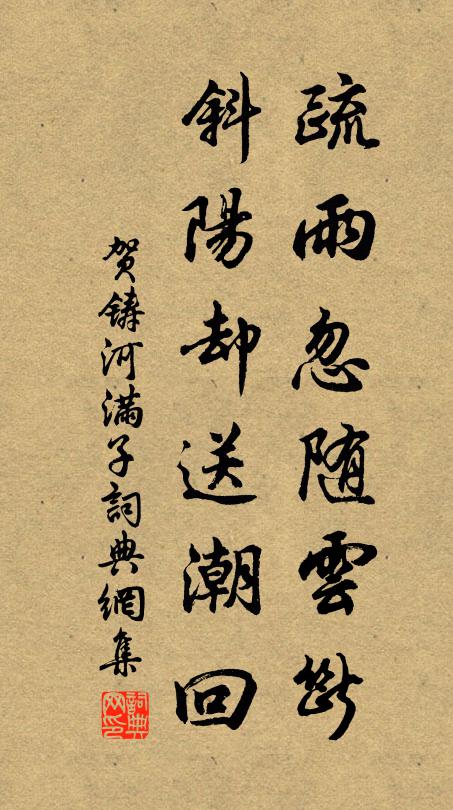 疏雨忽随雲斷
斜陽却送潮回
贺鋳河滿子詞典網集
詞典网印